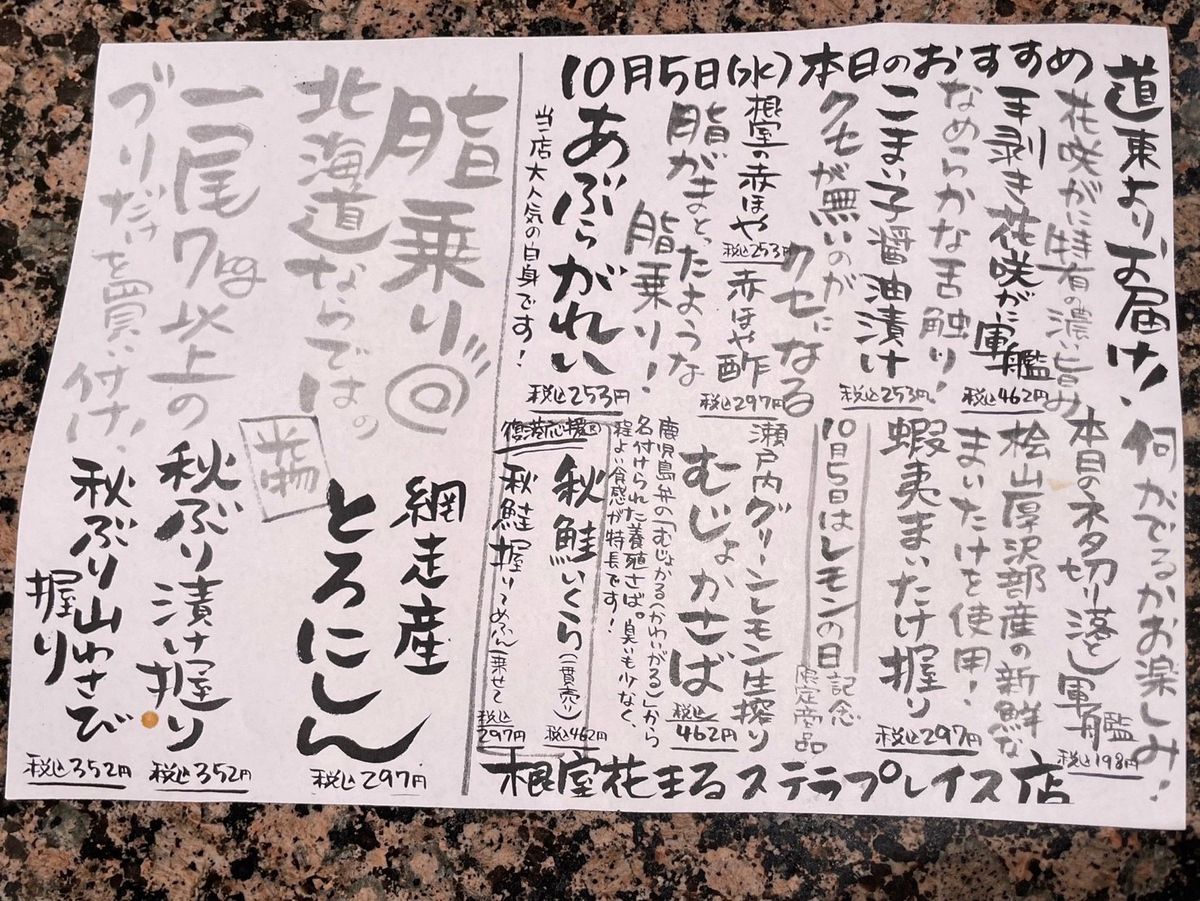 10月5日(水)本日のおすすめ
道東よりお届け!
花咲がに特有の濃い旨み
手剥き花咲がに軍艦
税込462円
なめらかな舌触り!
こまい子醤油漬け
税込253円
クセが無いのが
クセになる
根室の赤ほや
税込253円
赤ほや酢
税込297円
脂がまとったような
脂乗り!
あぶらがれい
税込253円
当店大人気の白身です!
何がでるかお楽しみ!
本日のネタ切り落とし軍艦
税込198円
桧山厚沢部産の新鮮な
まいたけを使用!
蝦夷まいたけ握り
税込297円
10月5日はレモンの日
記念
限定商品
瀬戸内グリーンレモン生搾り
むじょかさば
税込462円
鹿児島弁の「むじょかる(かわいがる)」から
名付けられた養殖さば。臭いも少なく、
程よい食感が特長です!
復港応援®
秋鮭いくら(一貫売)
税込462円
秋鮭握り〜めふん乗せて
税込297円
根室花まるステラプレイス店
脂乗り◎
北海道ならではの
光物
網走産
とろにしん
税込297円
一尾7kg以上の
ブリだけを買い付け!
秋ぶり漬け握り
税込352円
秋ぶり山わさび
握り
税込352円